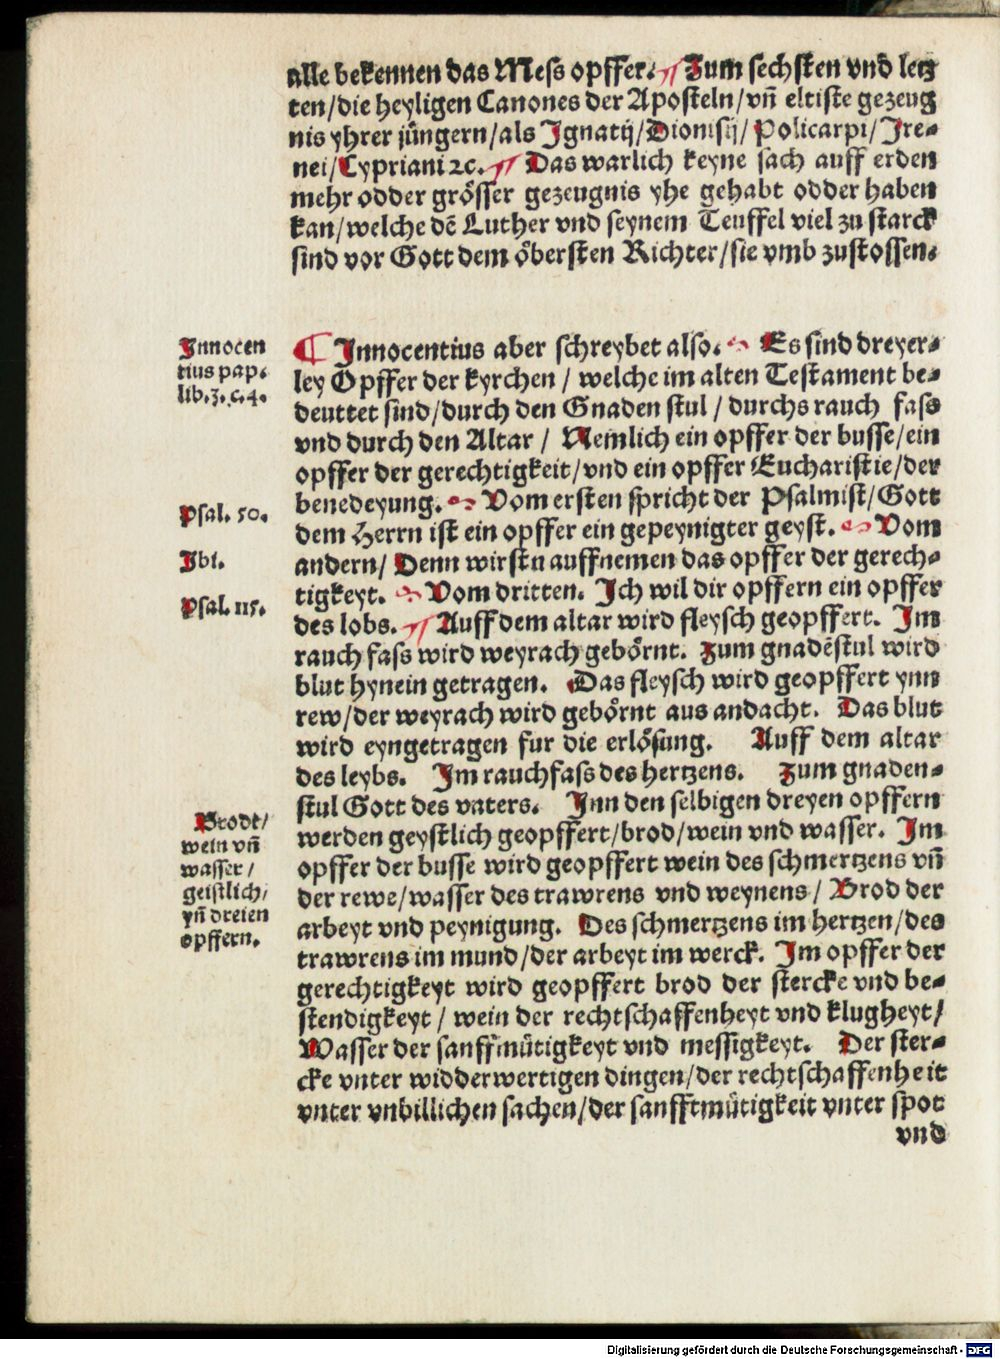 alle bekennen das Mess opffer. Zum sechsten vnd letz
ten/die heyligen Canones der Aposteln/vñ eltiste gezeug
nis yhrer jüngern/als Ignatij/Dionisij/Policarpi/Ire-
nei/Cypriani ⁊c. Das warlich keyne sach auff erden
mehr odder grösser gezeugnis yhe gehabt odder haben
kan/welche dẽ Luther vnd seynem Teuffel viel zu starck
sind vor Gott dem öbersten Richter/sie vmb zustossen.
Innocen
tius pap.
lib.3.c.4.
Innocentius aber schreybet also. Es sind dreyer-
ley Opffer der kyrchen / welche im alten Testament be-
deuttet sind/durch den Gnaden stul / durchs rauch fass
vnd durch den Altar / Nemlich ein opffer der busse/ein
opffer der gerechtigkeit/vnd ein opffer Eucharistie/der
benedeyung. Vom ersten spricht der Psalmist/Gott
Psal. 50.
dem Herrn ist ein opffer ein gepeynigter geyst. Vom
Ibi.
andern/ Denn wirstu auffnemen das opffer der gerech-
tigkeyt. Vom dritten. Ich wil dir opffern ein opffer
Psal. 115.
des lobs. Auff dem altar wird fleysch geopffert. Im
rauch fass wird weyrach gebörnt. Zum gnadẽstul wird
blut hynein getragen. Das fleysch wird geopffert ynn
rew/der weyrach wird gebörnt aus andacht. Das blut
wird eyngetragen fur die erlösung. Auff dem altar
des leybs. Im rauchfass des hertzens. Zum gnaden-
stul Gott des vaters. Inn den selbigen dreyen opffern
Brodt/
wein vñ
wasser/
geistlich/
yñ dreien
opffern.
werden geystlich geopffert/brod/wein vnd wasser. Im
opffer der busse wird geopffert wein des schmertzens vñ
der rewe/wasser des trawrens vnd weynens/ Brod der
arbeyt vnd peynigung. Des schmertzens im hertzen/des
trawrens im mund/der arbeyt im werck. Im opffer der
gerechtigkeyt wird geopffert brod der stercke vnd be-
stendigkeyt / wein der rechtschaffenheyt vnd klugheyt/
Wasser der sanffmütigkeyt vnd messigkeyt. Der ster-
cke vnter widderwertigen dingen/der rechtschaffenheit
vnter vnbillichen sachen/der sanfftmütigkeit vnter spot
vnd
Digitalisierung gefördert durch die Deutsche Forschungsgemeinschaft - DFG